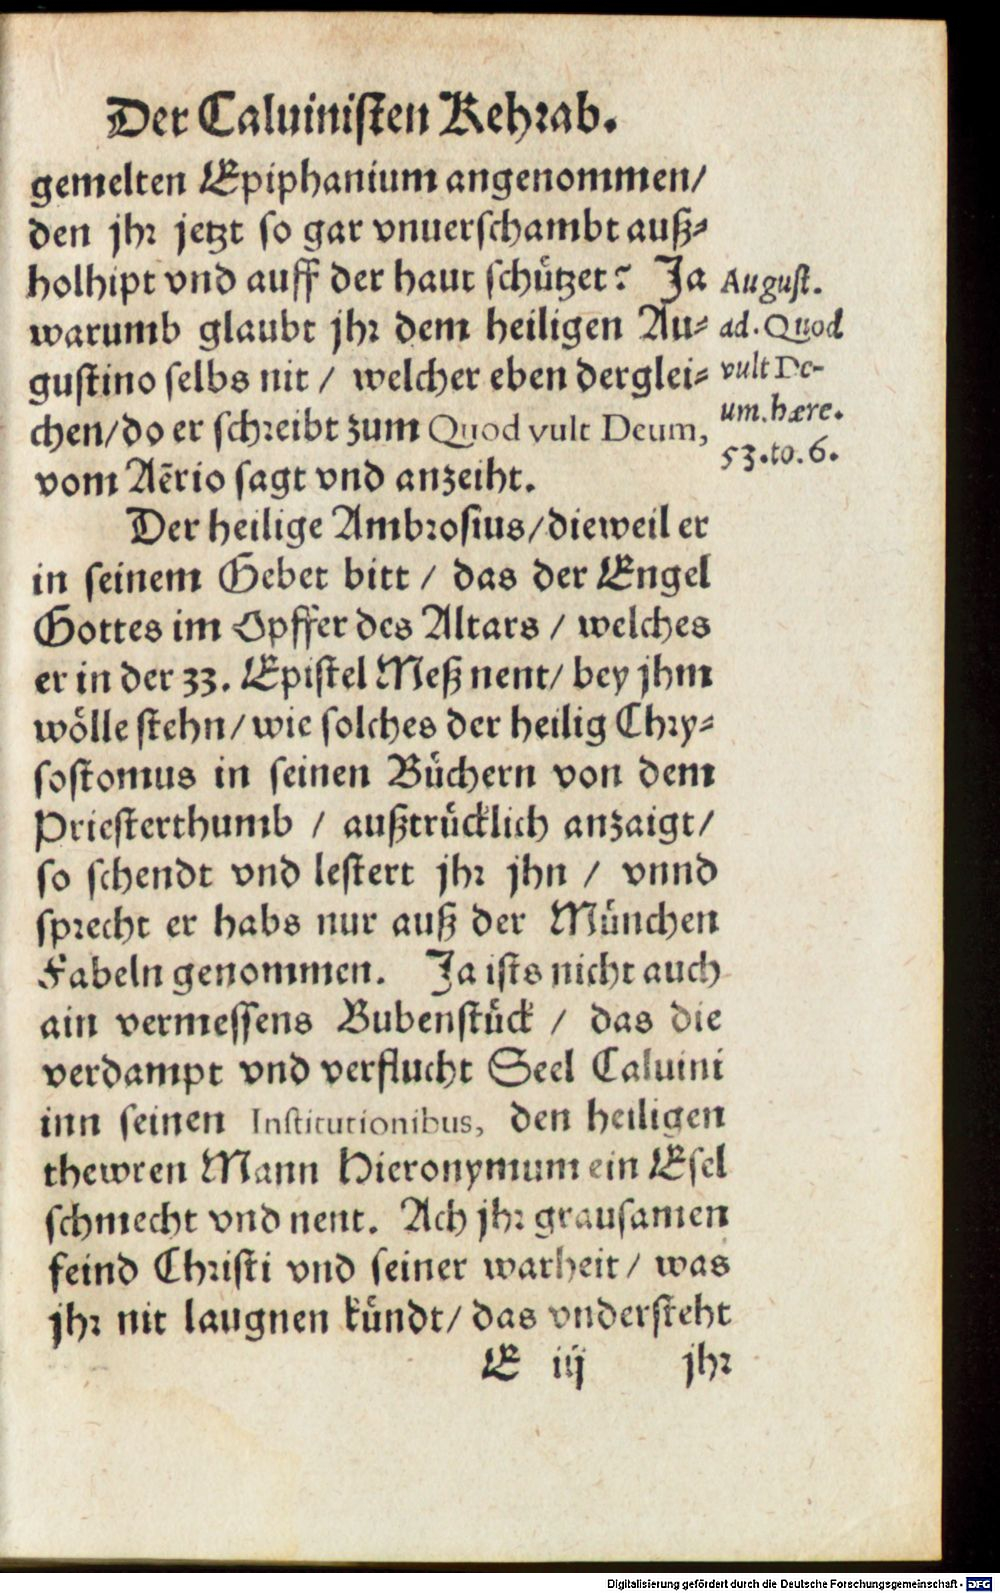 Der Caluinisten Kehrab.
gemelten Epiphanium angenommen/
den jhr jetzt so gar vnuerschambt auß⸗
holhipt vnd auff der haut schützet? Ja
warumb glaubt jhr dem heiligen Au⸗
gustino selbs nit / welcher eben derglei⸗
chen/do er schreibt zum Quod vult Deum,
vom Aërio sagt vnd anzeiht.
August.
ad. Quod
vult De-
um. hære.
53. to. 6.
Der heilige Ambrosius/dieweil er
in seinem Gebet bitt / das der Engel
Gottes im Opffer des Altars / welches
er in der 33. Epistel Meß nent/ bey jhm
wölle stehn/ wie solches der heilig Chry⸗
sostomus in seinen Büchern von dem
Priesterthumb / außtrücklich anzaigt/
so schendt vnd lestert jhr jhn / vnnd
sprecht er habs nur auß der München
Fabeln genommen. Ja ists nicht auch
ain vermessens Bubenstück / das die
verdampt vnd verflucht Seel Caluini
inn seinen Institutionibus, den heiligen
thewren Mann Hieronymum ein Esel
schmecht vnd nent. Ach jhr grausamen
feind Christi vnd seiner warheit/ was
jhr nit laugnen kündt/ das vndersteht
E iij jhr
Digitalisierung gefördert durch die Deutsche Forschungsgemeinschaft - DFG